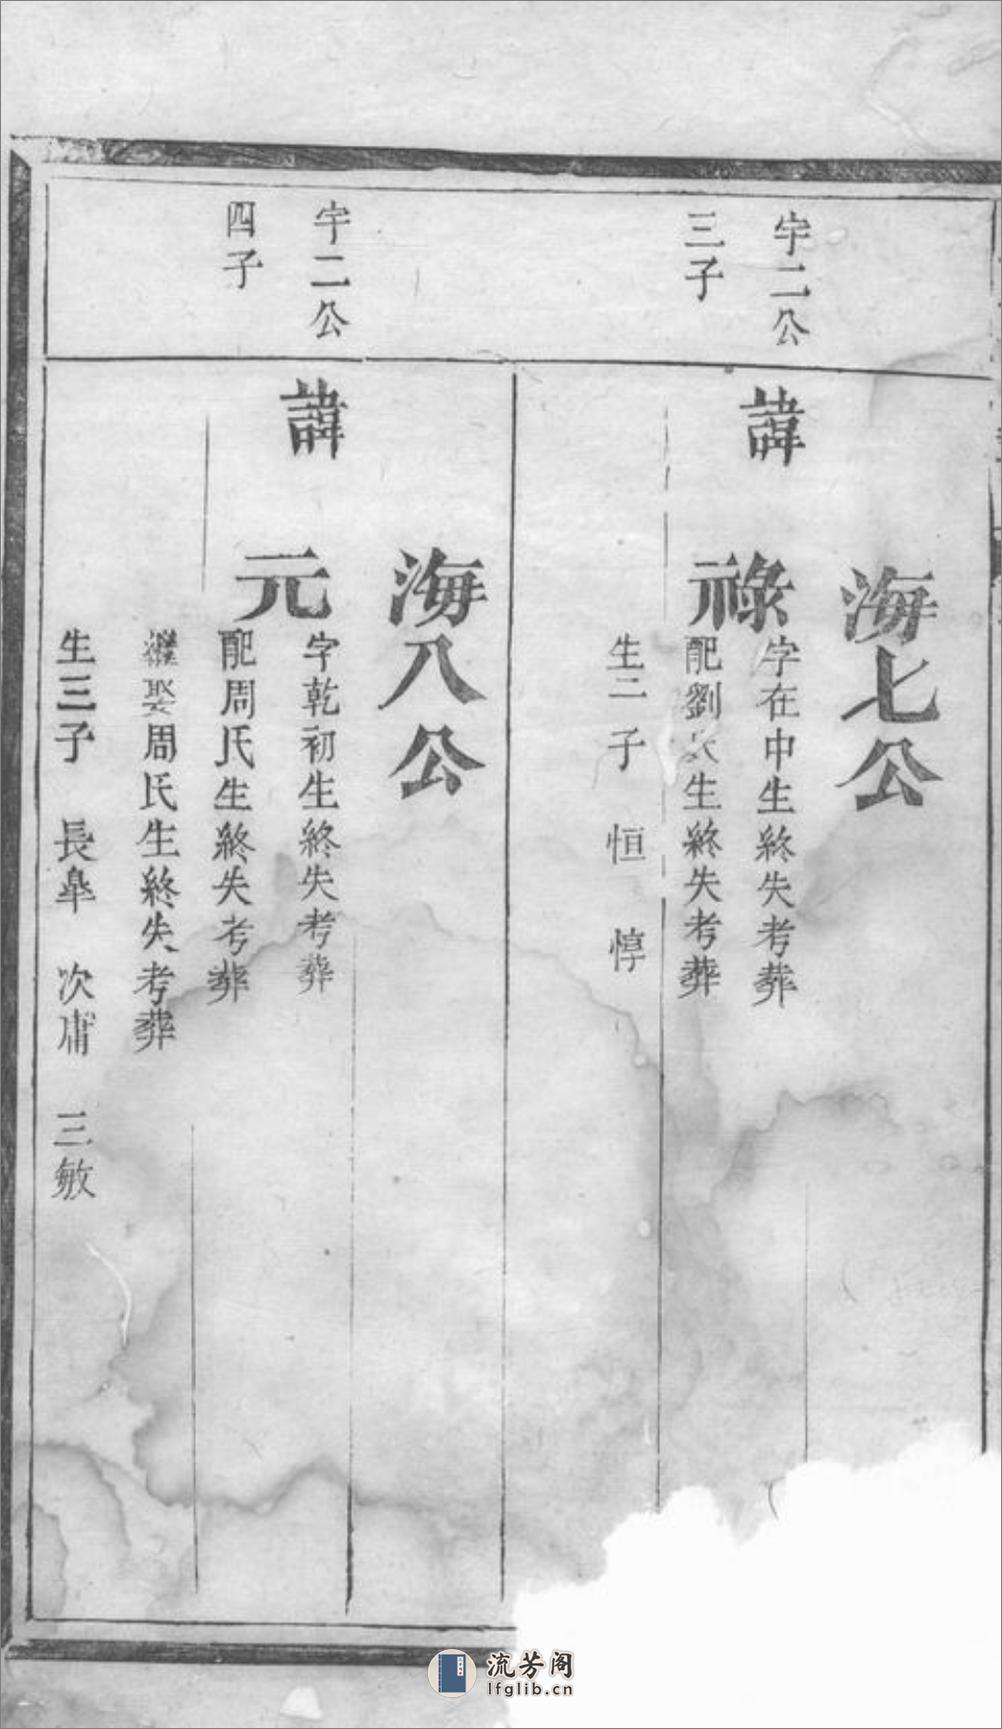 宇二公
三子
海七公
諱祿
字在中生終失考葬
配劉氏生終失考葬
生二子 恒 惇
宇二公
四子
海八公
諱元
字乾初生終失考葬
配周氏生終失考葬
繼娶周氏生終失考葬
生三子 長皐 次庸 三敏
流芳阁
lfglib.cn